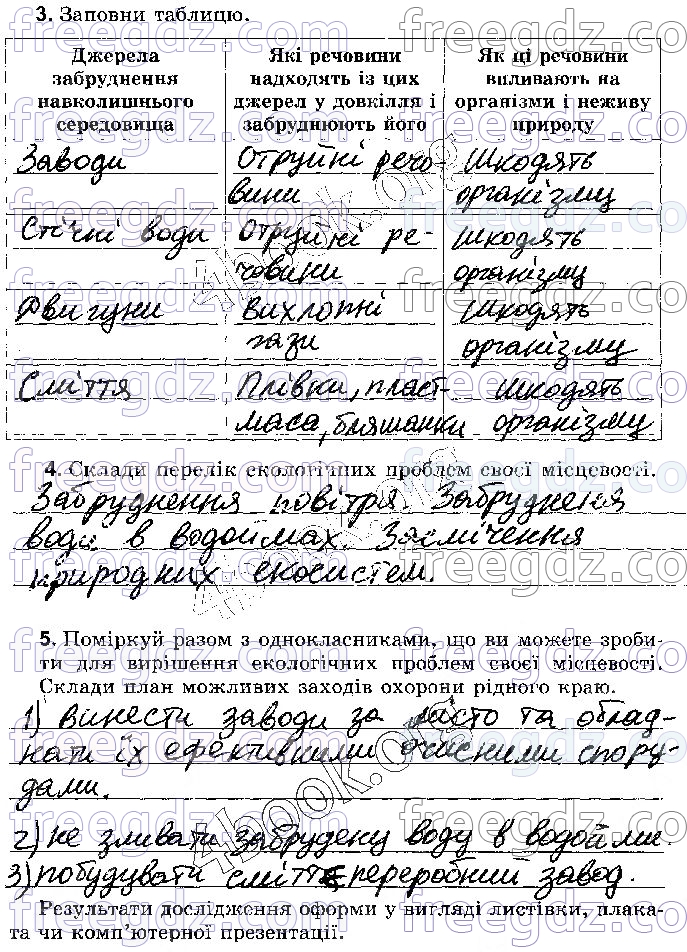 3. Заповни таблицю.
Джерела забруднення навколишнього середовища
Які речовини надходять із цих джерел у довкілля і забруднюють його
Як ці речовини впливають на організми і неживу природу
Заводи
Отруйні речо-
вини
Шкодять
організму
Стічні води
Отруйні ре-
човини
Шкодять
організму
Двигуни
Вихлопні
гази
Шкодять
організму
Сміття
Плівки, пласт-
маса, бляшанки
Шкодять
організму
4. Склади перелік екологічних проблем своєї місцевості.
Забруднення повітря. Забруднення
води в водоймах. Засмічення
природних екосистем.
5. Поміркуй разом з однокласниками, що ви можете зроби-
ти для вирішення екологічних проблем своєї місцевості.
Склади план можливих заходів охорони рідного краю.
1) винести заводи за місто та облад-
нати їх ефективними очисними спору-
дами.
2) не зливати забруднену воду в водойми.
3) побудувати сміттєпереробний завод.
Результати дослідження оформи у вигляді листівки, плака-
та чи комп'ютерної презентації.
freegdz.com
4book.org